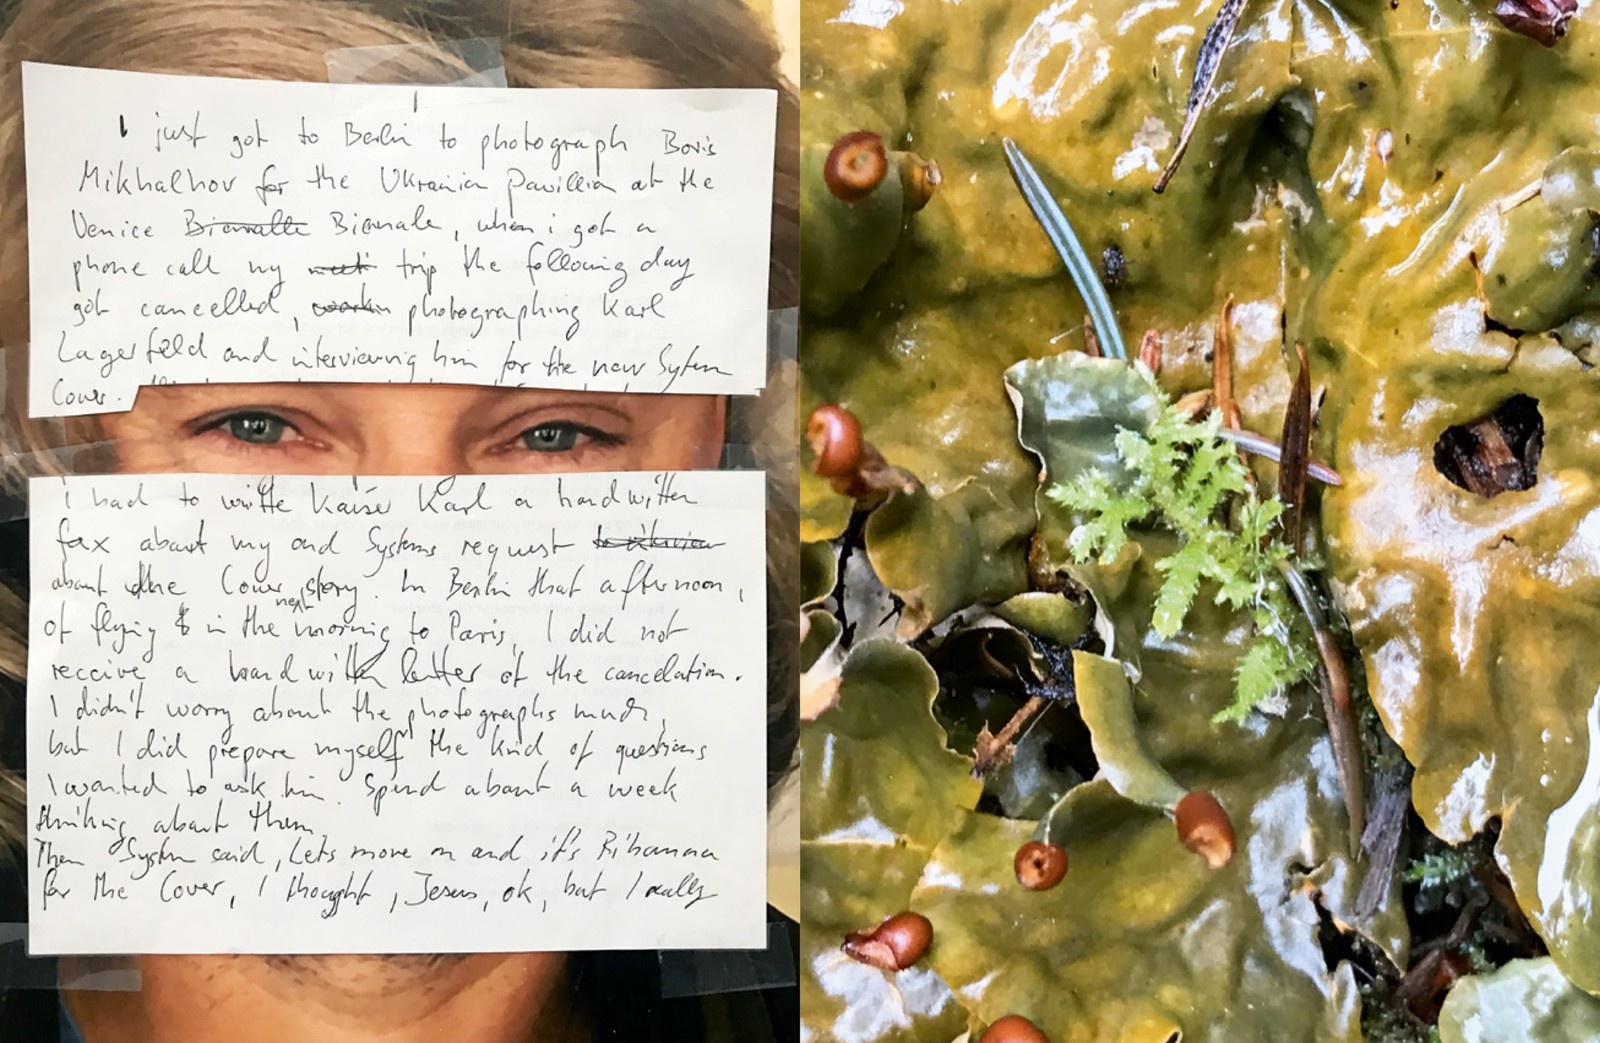 I just got to Berlin to photograph Boris
Mikhalhov for the Ukrainian Pavillion at the
Venice Biennalle Biennale, when i got a
phone call my trip the following day
got cancelled, photographing Karl
Lagerfeld and interviewing him for the new System
Cover.
I had to write Kaiser Karl a handwitten
fax about my and Systems request
about the Cover story. In Berlin that afternoon,
of flying in the next morning to Paris, I did not
receive a handwitten letter of the cancelation.
I didn't worry about the photographs much,
but I did prepare myself the kind of questions
I wanted to ask him. Spend about a week
thinking about them.
Then System said, Lets move on and it's Rihanna
for the Cover, I thought, Jesus, ok, but I really